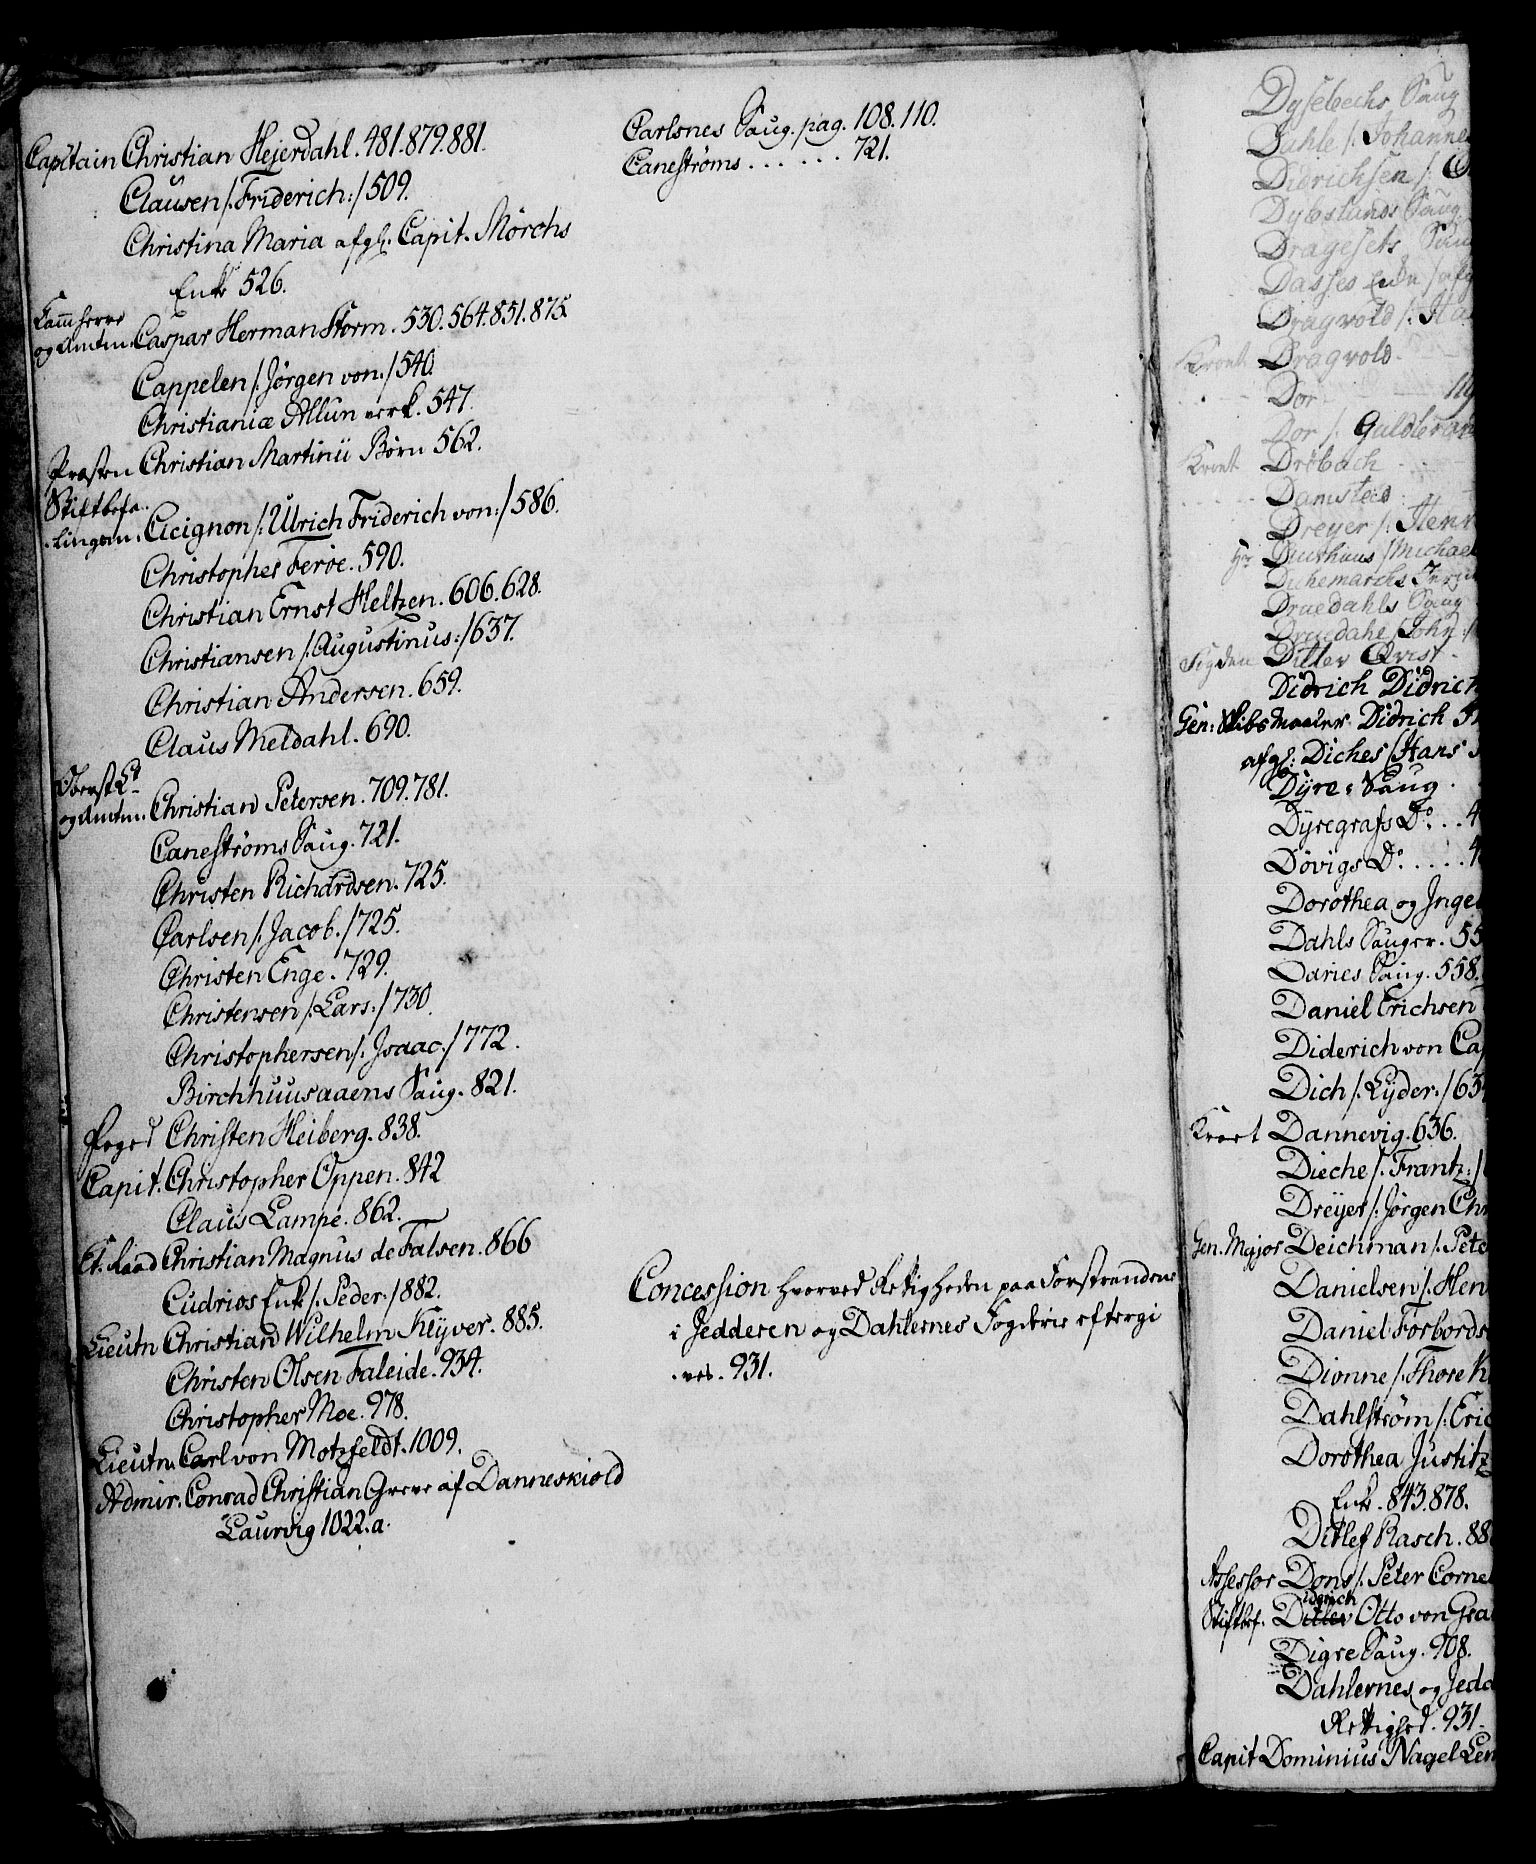 Capitain Christian Hejerdahl. 481. 879. 881.
Clausen /: Friderich: / 509.
Christina Maria afgl: Capit. Mörchs
Enke 526.
Camherre
og Amtm. Caspar Herman Storm. 530. 564. 851. 875.
Cappelen /: Jörgen von: / 540.
Christianiæ Allun verk. 547.
Præsten Christian Martinii Börn 562.
Stiftbefa-
lingsm. Cicignon /: Ulrich Friderich von: / 586.
Christopher Feröe. 590.
Christian Ernst Heltzen. 606. 628.
Christiansen /: Augustinus: / 637.
Christian Andersen. 659.
Claus Meldahl. 690.
Oberst Lt
og Amtm. Christian Petersen. 709. 781.
Caneströms Saug. 721.
Christen Richardsen. 725.
Carlsen /: Jacob. / 725.
Christen Enge. 729.
Christensen /: Lars: / 730.
Christophersen /: Isaac: / 772.
Birchhuusaaens Saug. 821.
Foged Christen Heiberg. 838.
Capit. Christopher Oppen. 842
Claus Lampe. 862.
Et. Raad Christian Magnus de Falsen. 866
Cudrios Enke /: Peder: / 882.
Lieutn Christian Wilhelm Keyver. 885.
Christen Olsen Faleide. 934.
Christopher Moe. 978.
Lieutn. Carl von Motzfeldt. 1009.
Admir. Conrad Christian Greve af Danneskiold
Laurvig 1022. a.
Carlsnes Saug. pag. 108. 110.
Caneströms . . . . . . 721.
Concession hvorved Rettigheden paa Forstrandene
i Jedderen og Dahlernes Fogderie eftergi
ves. 931.
Dysebechs Saug
Dahle /: Johannes
Didrichsen /:
Dybslands Saug
Dragesets Saug
Dasses Enke /
Dragvold /:
Kront Dragvold
Dor 119
Dor /: Guldbrand
Kront Dröbach
Damsted
Dreyer /: Henr
Hr Duurhuus / Michael
Dichemarchs
Druedahls Saug
Druedahl / John
Fogden Ditlev Qvist
Didrich Didrich
Gen: Krigs Maaler Didrich
afgl: Diches / Hans
Dyre Saug
Dyregrafs Do. . . 4
Dövigs Do. . . . . 4
Dorothea og Inge
Dahls Sauger. 55
Daries Saug. 558.
Daniel Erichsen
Diderich von Cap
Dich /: Lyder: / 63
Kront Dannevig. 636.
Dieche /: Frantz: /
Dreyer /: Jörgen Chr
Gen. Major Deichman /: Pete
Danielsen /: Hen
Daniel Forbords
Dionne /: Thore K
Dahlström /: Eric
Dorothea Justitz
Enke. 843. 878.
Ditlef Rasch. 88
Assessor Dons /: Peter Corne
iderich
Stiftbef. Ditlev Otto von Gra
Digre Saug. 908.
Dahlernes og Jedd
Rettighed. 931.
Capit Dominius Nagel Len